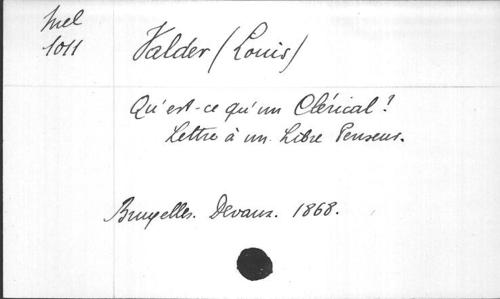 Mel
1011
Valder (Louis)
Qu'est-ce qu'un Clérical?
Lettre à un Libre Penseur.
Bruxelles. Devaux. 1868.